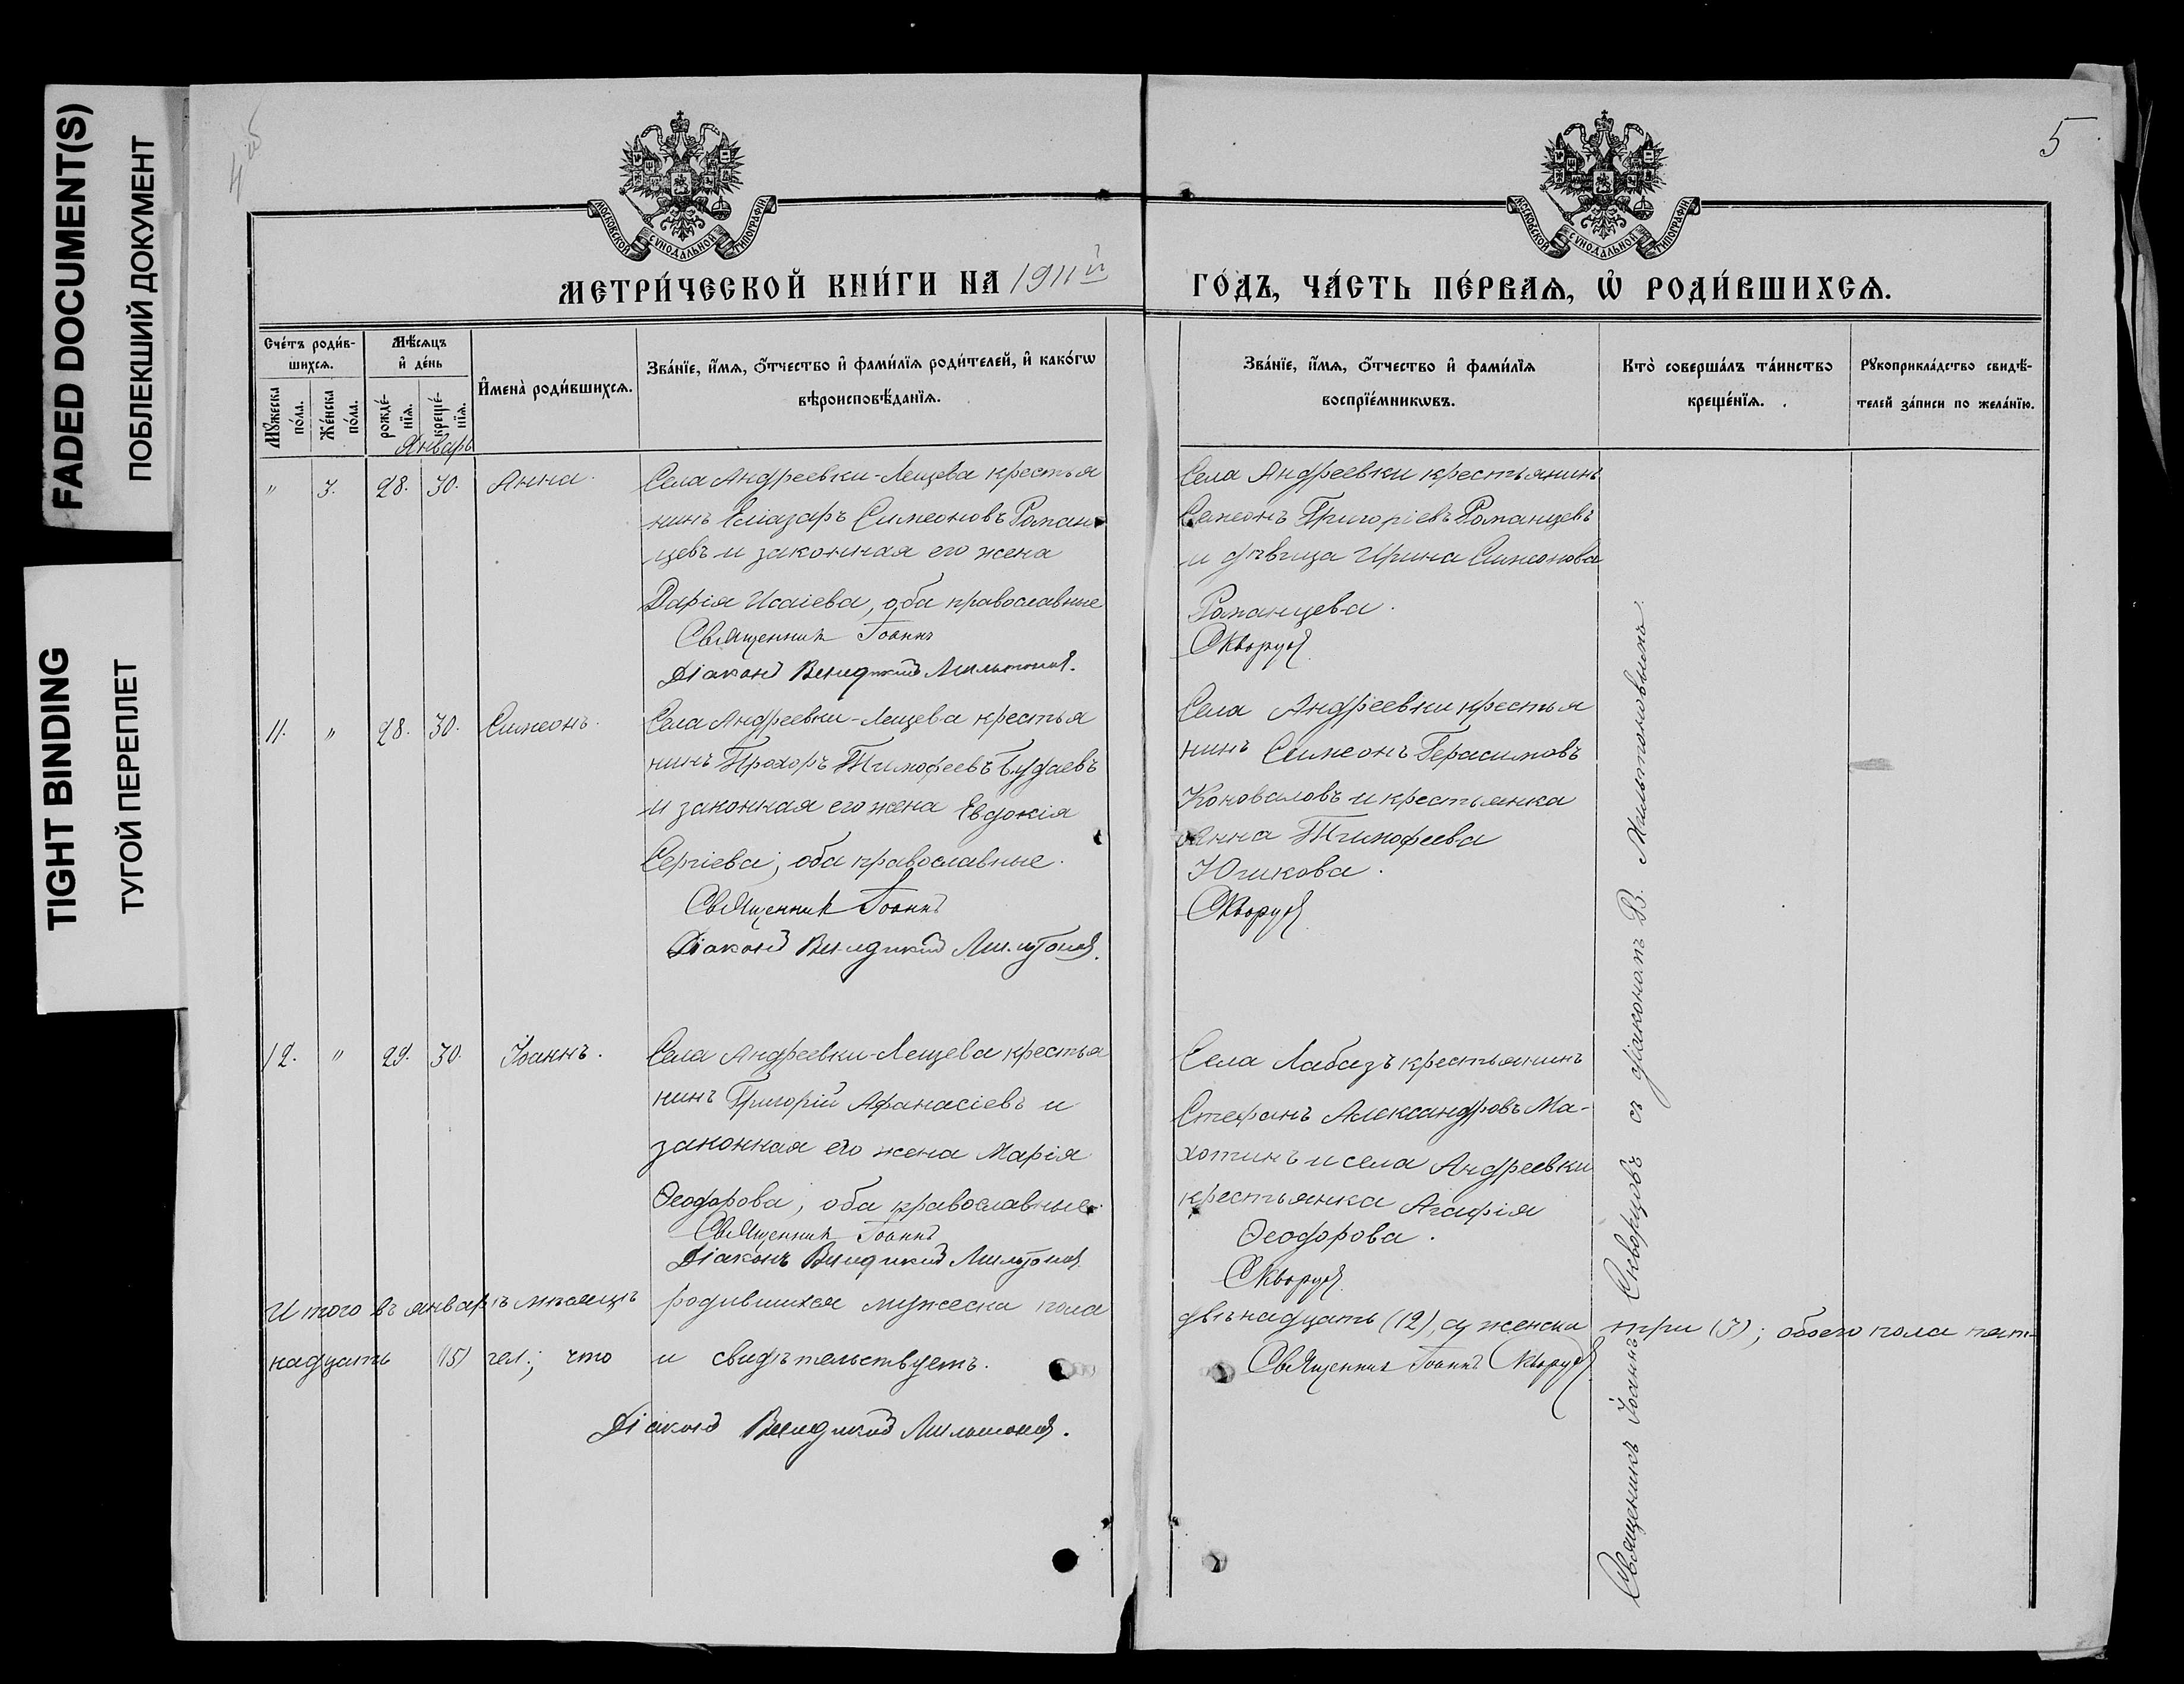 FADED DOCUMENT(S)
ПОБЛЕКШИЙ ДОКУМЕНТ
TIGHT BINDING
ТУГОЙ ПЕРЕПЛЕТ
5
МОСКОВСКОЙ СѴНОДАЛЬНОЙ ТИПОГРАФІИ
МОСКОВСКОЙ СѴНОДАЛЬНОЙ ТИПОГРАФІИ
МЕТРИ́ЧЕСКОЙ КНИ́ГИ НА 1911й ГО́ДЪ, ЧА́СТЬ ПЕ́РВАѦ, Ѡ҆ РОДИ́ВШИХСѦ.
Сче́тъ роди́вшихсѧ.
Мꙋ́жеска по́ла.
Же́нска по́ла.
Мѣ́сѧцъ и҆ де́нь
рожде́нїѧ.
креще́нїѧ.
И҆мена̀ роди́вшихсѧ.
Зва́нїе, и҆́мѧ, ѻ҆́тчество и҆ фами́лїѧ роди́телей, и҆ како́гѡ вѣроисповѣ́данїѧ.
Зва́нїе, и҆́мѧ, ѻ҆́тчество и҆ фами́лїѧ воспрїе́мникѡвъ.
Кто̀ соверша́лъ та́инство креще́нїѧ.
Рꙋкоприкла́дство свидѣ́телей за́писи по жела́нїю.
Январь
" 3. 28. 30. Анна.
Села Андреевки-Лещева крестья
нинъ Еліазаръ Симеоновъ Роман
цевъ и законная его жена
Дарія Исаіева, оба православные
Священникъ Іоаннъ
Діаконъ Венедиктъ Мильтоновъ.
Села Андреевки крестьянинъ
Симеонъ Григоріевъ Романцевъ
и дѣвица Ирина Симеонова
Романцева.
Скворцовъ
11. " 28. 30. Симеонъ.
Села Андреевки-Лещева крестья
нинъ Прохоръ Тимофеевъ Будаевъ
и законная его жена Евдокія
Сергіева, оба православные.
Священникъ Іоаннъ
Діаконъ Венедиктъ Мильтоновъ.
Села Андреевки крестья
нинъ Симеонъ Герасимовъ
Коноваловъ и крестьянка
Анна Тимофеева
Юшкова.
Скворцовъ
12. " 29. 30. Іоаннъ.
Села Андреевки-Лещева крестья
нинъ Григорій Афанасіевъ и
законная его жена Марія
Ѳеодорова, оба православные.
Священникъ Іоаннъ
Діаконъ Венедиктъ Мильтоновъ
Села Лабазъ крестьянинъ
Стефанъ Александровъ Ма-
хотинъ и села Андреевки
крестьянка Агафія
Ѳеодорова.
Скворцовъ
Священникъ Іоаннъ Скворцовъ съ діакономъ В. Мильтоновымъ
Итого въ январѣ мѣсяцѣ родившихся мужеска пола двѣнадцать (12), а женска три (3); обоего пола пят-
надцать (15) чел.; что и свидѣтельствуетъ. Священникъ Іоаннъ Скворцовъ
Діаконъ Венедиктъ Мильтоновъ.